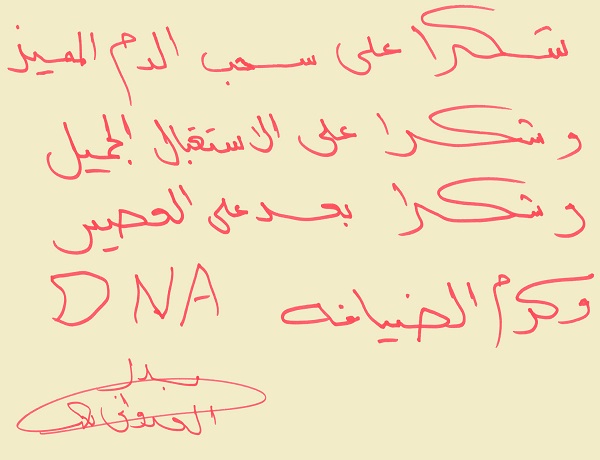 شكرا على سحب الدم المميز
و شكرا على الاستقبال الجميل
و شكرا بعد على العصير
وكرم الضيافه DNA